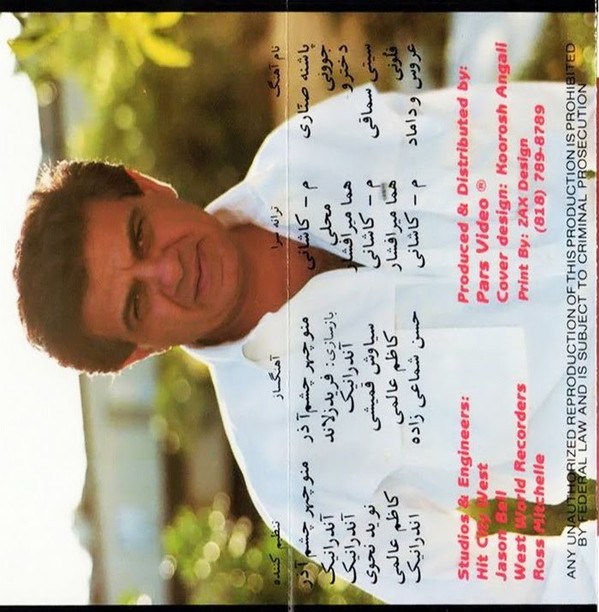 نام آهنگ ترانه سرا آهنگساز تنظیم کننده
پاشنه صناری م - کاشانی منوچهر چشم آذر منوچهر چشم آذر
جوونی محلی بازسازی: فریدزلاند آندرانیک
دخترو هما میرافشار آندرانیک آندرانیک
سینی سماقی م - کاشانی سیاوش قمیشی نوید نحوی
فلونی هما میرافشار کاظم عالمی کاظم عالمی
عروس و داماد م - کاشانی حسن شماعی زاده آندرانیک
Studios & Engineers:
Hit City West
Jason Bell
West World Recorders
Ross Mitchelle
Produced & Distributed by:
Pars Video ®
Cover design: Koorosh Angali
Print By: ZAX Design
(818) 789-8789
ANY UNAUTHORIZED REPRODUCTION OF THIS PRODUCTION IS PROHIBITED
BY FEDERAL LAW AND IS SUBJECT TO CRIMINAL PROSECUTION